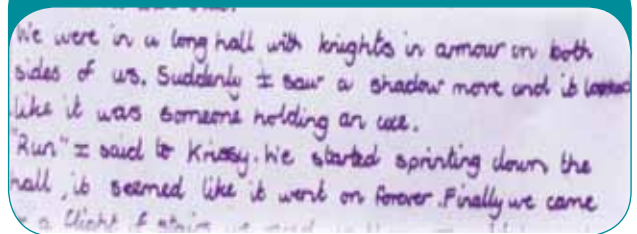 We were in a long hall with knights in armour on both
sides of us. Suddenly I saw a shadow move and it looked
like it was someone holding an axe.
"Run" I said to Krissy. We started sprinting down the
hall, it seemed like it went on forever. Finally we came
a flight of stairs